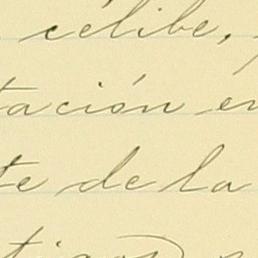 célibe,
tación en
te de la